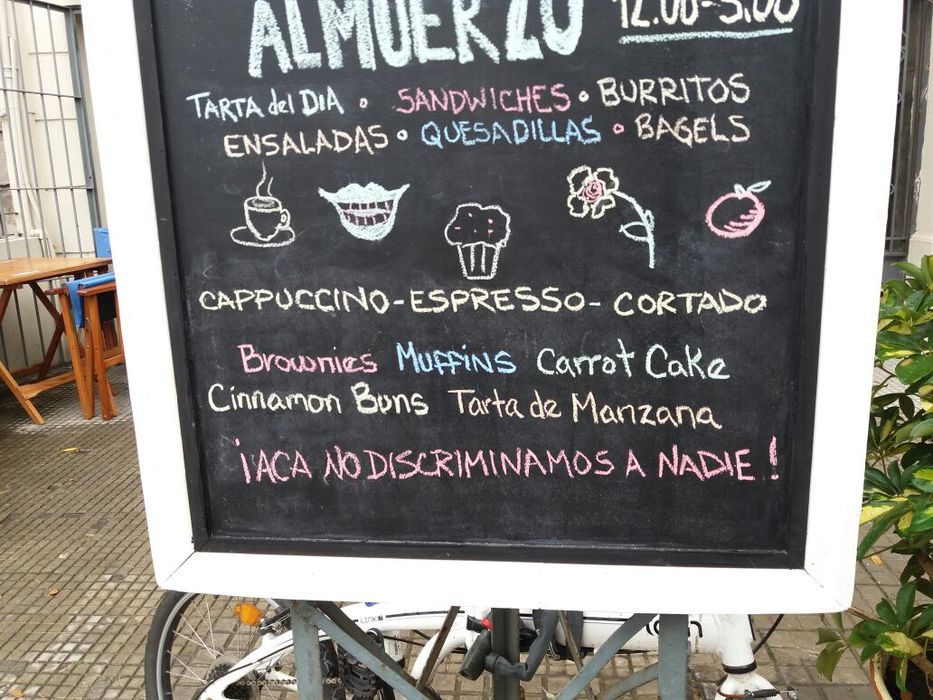 ALMUERZO 12.00-3.00
TARTA del DIA • SANDWICHES • BURRITOS
ENSALADAS • QUESADILLAS • BAGELS
CAPPUCCINO-ESPRESSO-CORTADO
Brownies MUFFiNS Carrot Cake
Cinnamon Buns Tarta de Manzana
¡ACA NO DISCRIMINAMOS A NADIE!
LINK